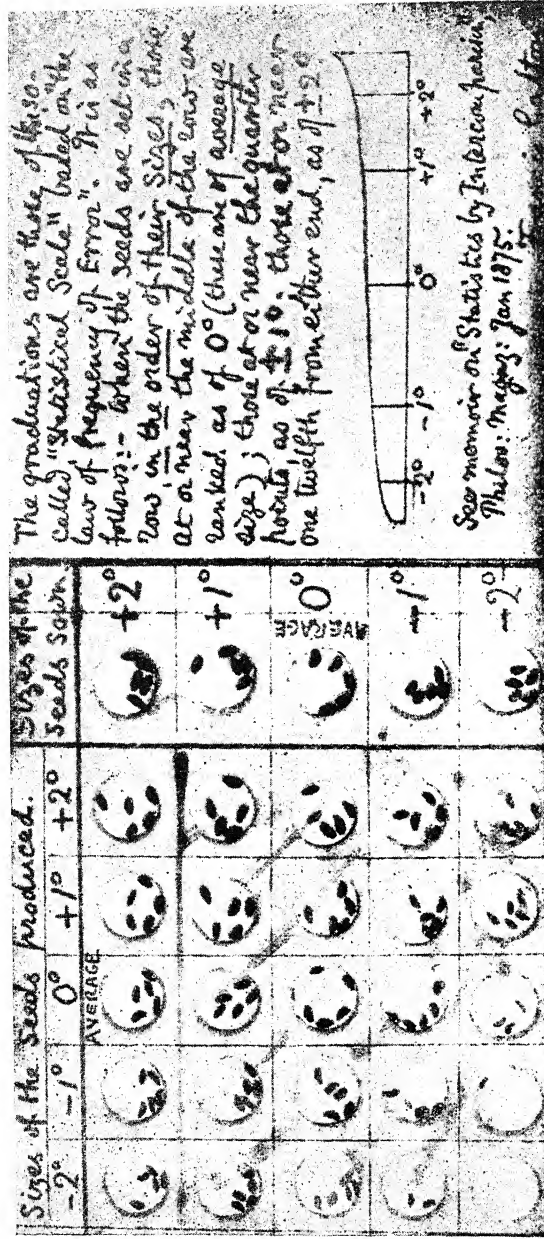 Sizes of the Seeds produced.
-2° -1° 0° +1° +2°
AVERAGE
Sizes of the
Seeds Sown.
+2°
+1°
0°
AVERAGE
-1°
-2°
The graduations are those of the so-
called "Statistical Scale" based on the
law of Frequency of Error". It is as
follows:- When the seeds are set in a
row in the order of their sizes, those
at or near the middle of the row are
ranked as of 0° (these are of average
size); those at or near the quarter
points, as of ±1°. those at or near
one twelfth from either end, as of ±2°.
-2° -1° 0° +1° +2°
See memoir on "Statistics by Intercomparison"
Philos: Magaz: Jan 1875.
Galton